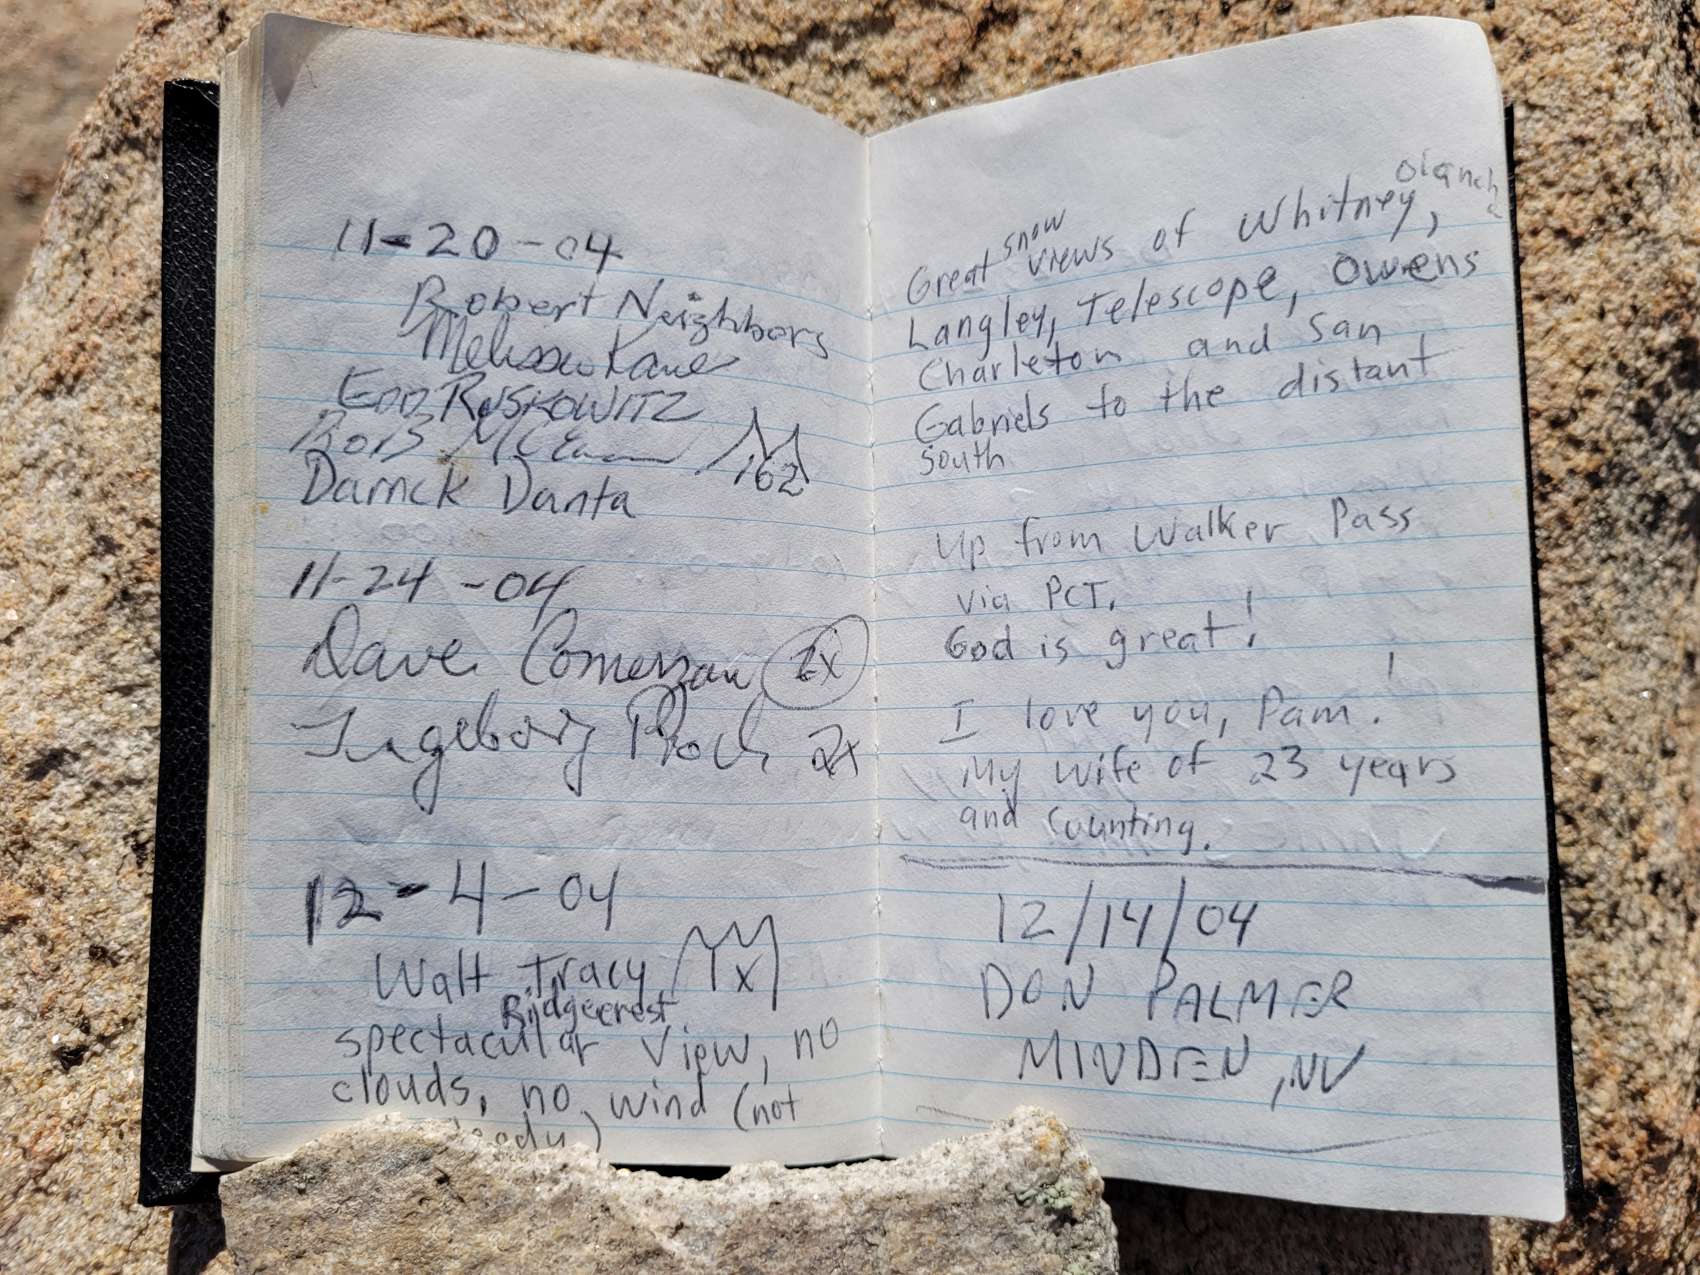 11-20-04
Robert Neighbors
Melissa Kane
RUSKOWITZ
162
Darrick Danta
11-24-04
Dave 2x
Ingeborg 2x
12-4-04
Walt Tracy 1x
Ridgecrest
spectacular view, no
clouds, no wind (not
Olancha
Great snow views of Whitney,
Langley, Telescope, Owens
Charleton and San
Gabriels to the distant
South
Up from Walker Pass
via PCT.
God is great!
I love you, Pam!
My wife of 23 years
and counting.
12/14/04
DON PALMER
MINDEN, NV